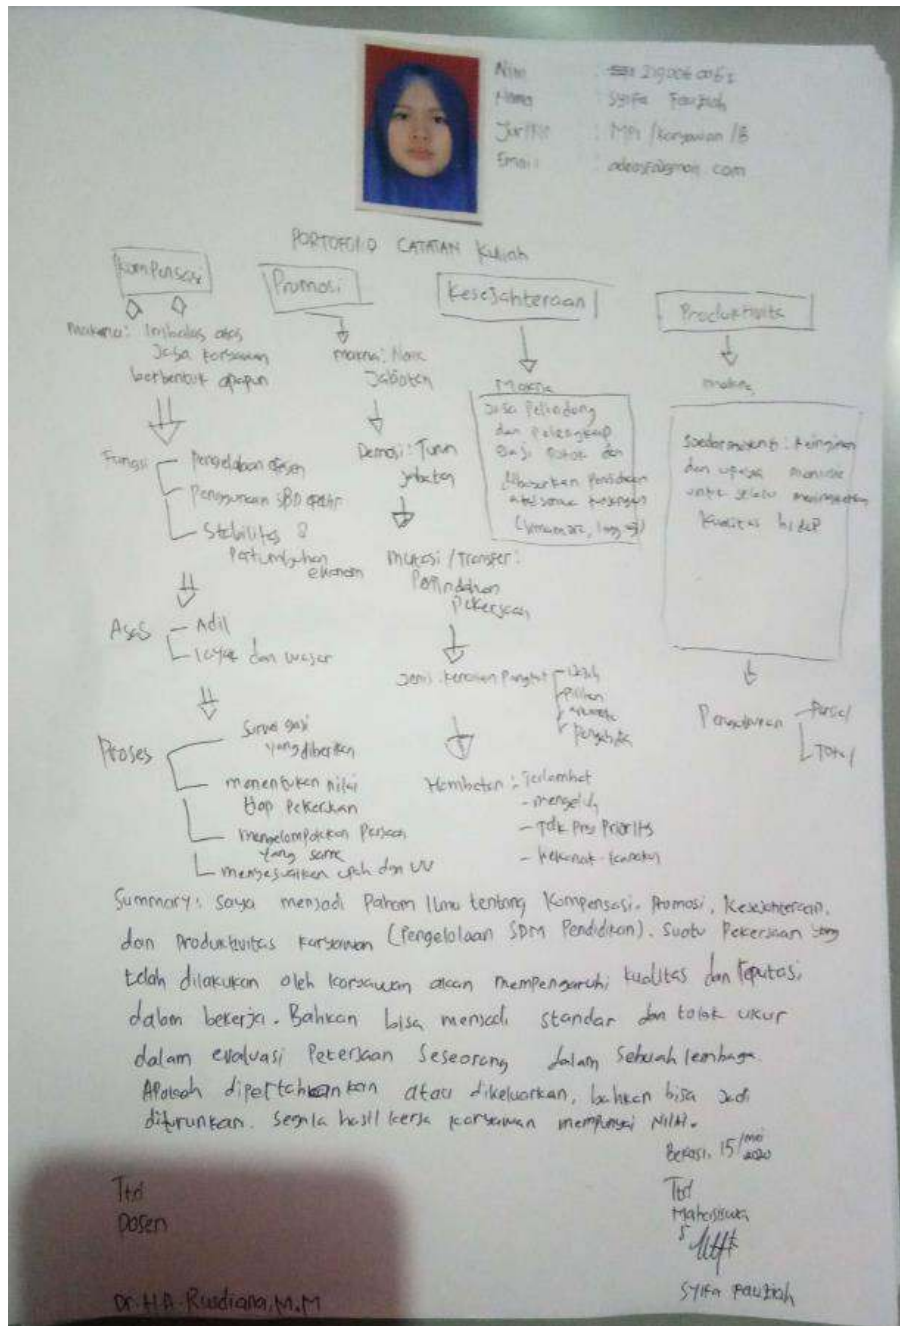 Nim : 219006 0061
Nama : Syifa Fauziah
Jur/
: MPI /karyawan /B
Email :
PORTOFOLIO CATATAN Kuliah
Kompensasi
makna: Imbalas atas
Jasa karyawan
berbentuk apapun
Fungsi
Pengelolaan
Penggunaan SBD
Stabilitas &
Pertumbuhan
ekonom
Asas
Adil
layak dan wajar
Proses
Survei gaji
yang diberikan
menentukan nilai
tiap Pekerjaan
mengelompokkan
yang sama
menyesuaikan upah dan UU
Promosi
makna: Naik
Jabatan
Demosi: Turun
jabatan
mutasi / Transfer :
Perpindahan
Pekerjaan
Jenis kenaikan Pangkat
Pilihan
Hambatan : Terlambat
- mengeluh
- Tdk Prioritas
- kekanak-kanakan
Kesejahteraan
Makna
Jasa Pelindung
dan Pelengkap
Gaji Pokok dan
Productivits
makna
: keinginan
dan upaya manusia
untuk selalu meningkatkan
Kualitas hidup
Pengukuran
Parsial
Total
Summary: Saya menjadi Paham Ilmu tentang Kompensasi, Promosi, Kesejahteraan,
dan Produktivitas karyawan (Pengelolaan SDM Pendidikan). Suatu Pekerjaan yang
telah dilakukan oleh karyawan akan mempengaruhi kualitas dan reputasi
dalam bekerja. Bahkan bisa menjadi standar dan tolak ukur
dalam evaluasi Pekerjaan Seseorang dalam Sebuah lembaga.
Apakah dipertahankan atau dikeluarkan, bahkan bisa jadi
diturunkan. Segala hasil kerja karyawan mempunyai Nilai.
Bekasi, 15/mei
2020
Ttd
Dosen
Dr. H.A. Rusdiana, M.M
Ttd
Mahasiswa
Syifa Fauziah